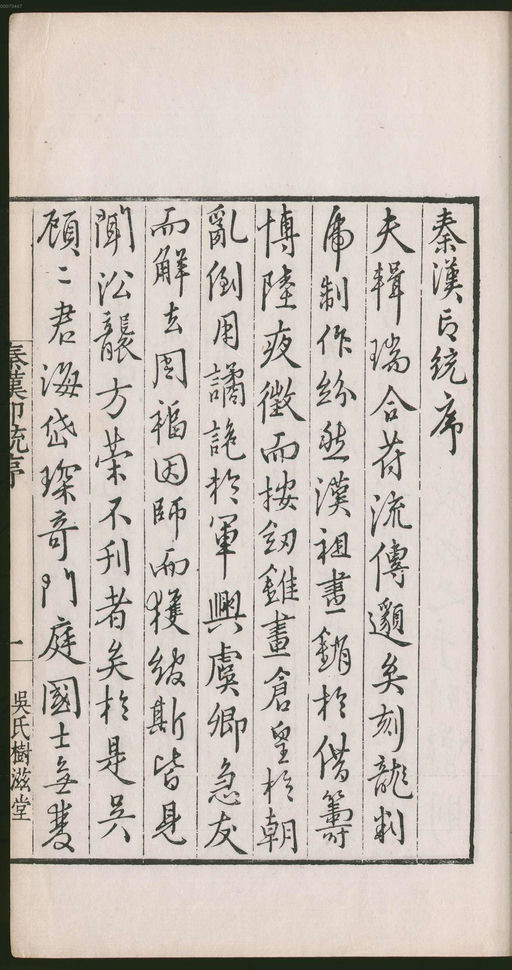 秦漢印統序
夫輯瑞合符流傳邈矣刻龍刺
虎制作紛然漢祖畫銷於借籌
博陸夜徵而按劒雖畫倉皇於朝
亂倒用譎詭於軍興虞卿急友
而解去周福因師而獲綬斯皆見
聞沿襲方策不刊者矣於是吴
顧二君海岱琛奇門庭國士無雙
秦漢印統序
一
吳氏樹滋堂
00073467